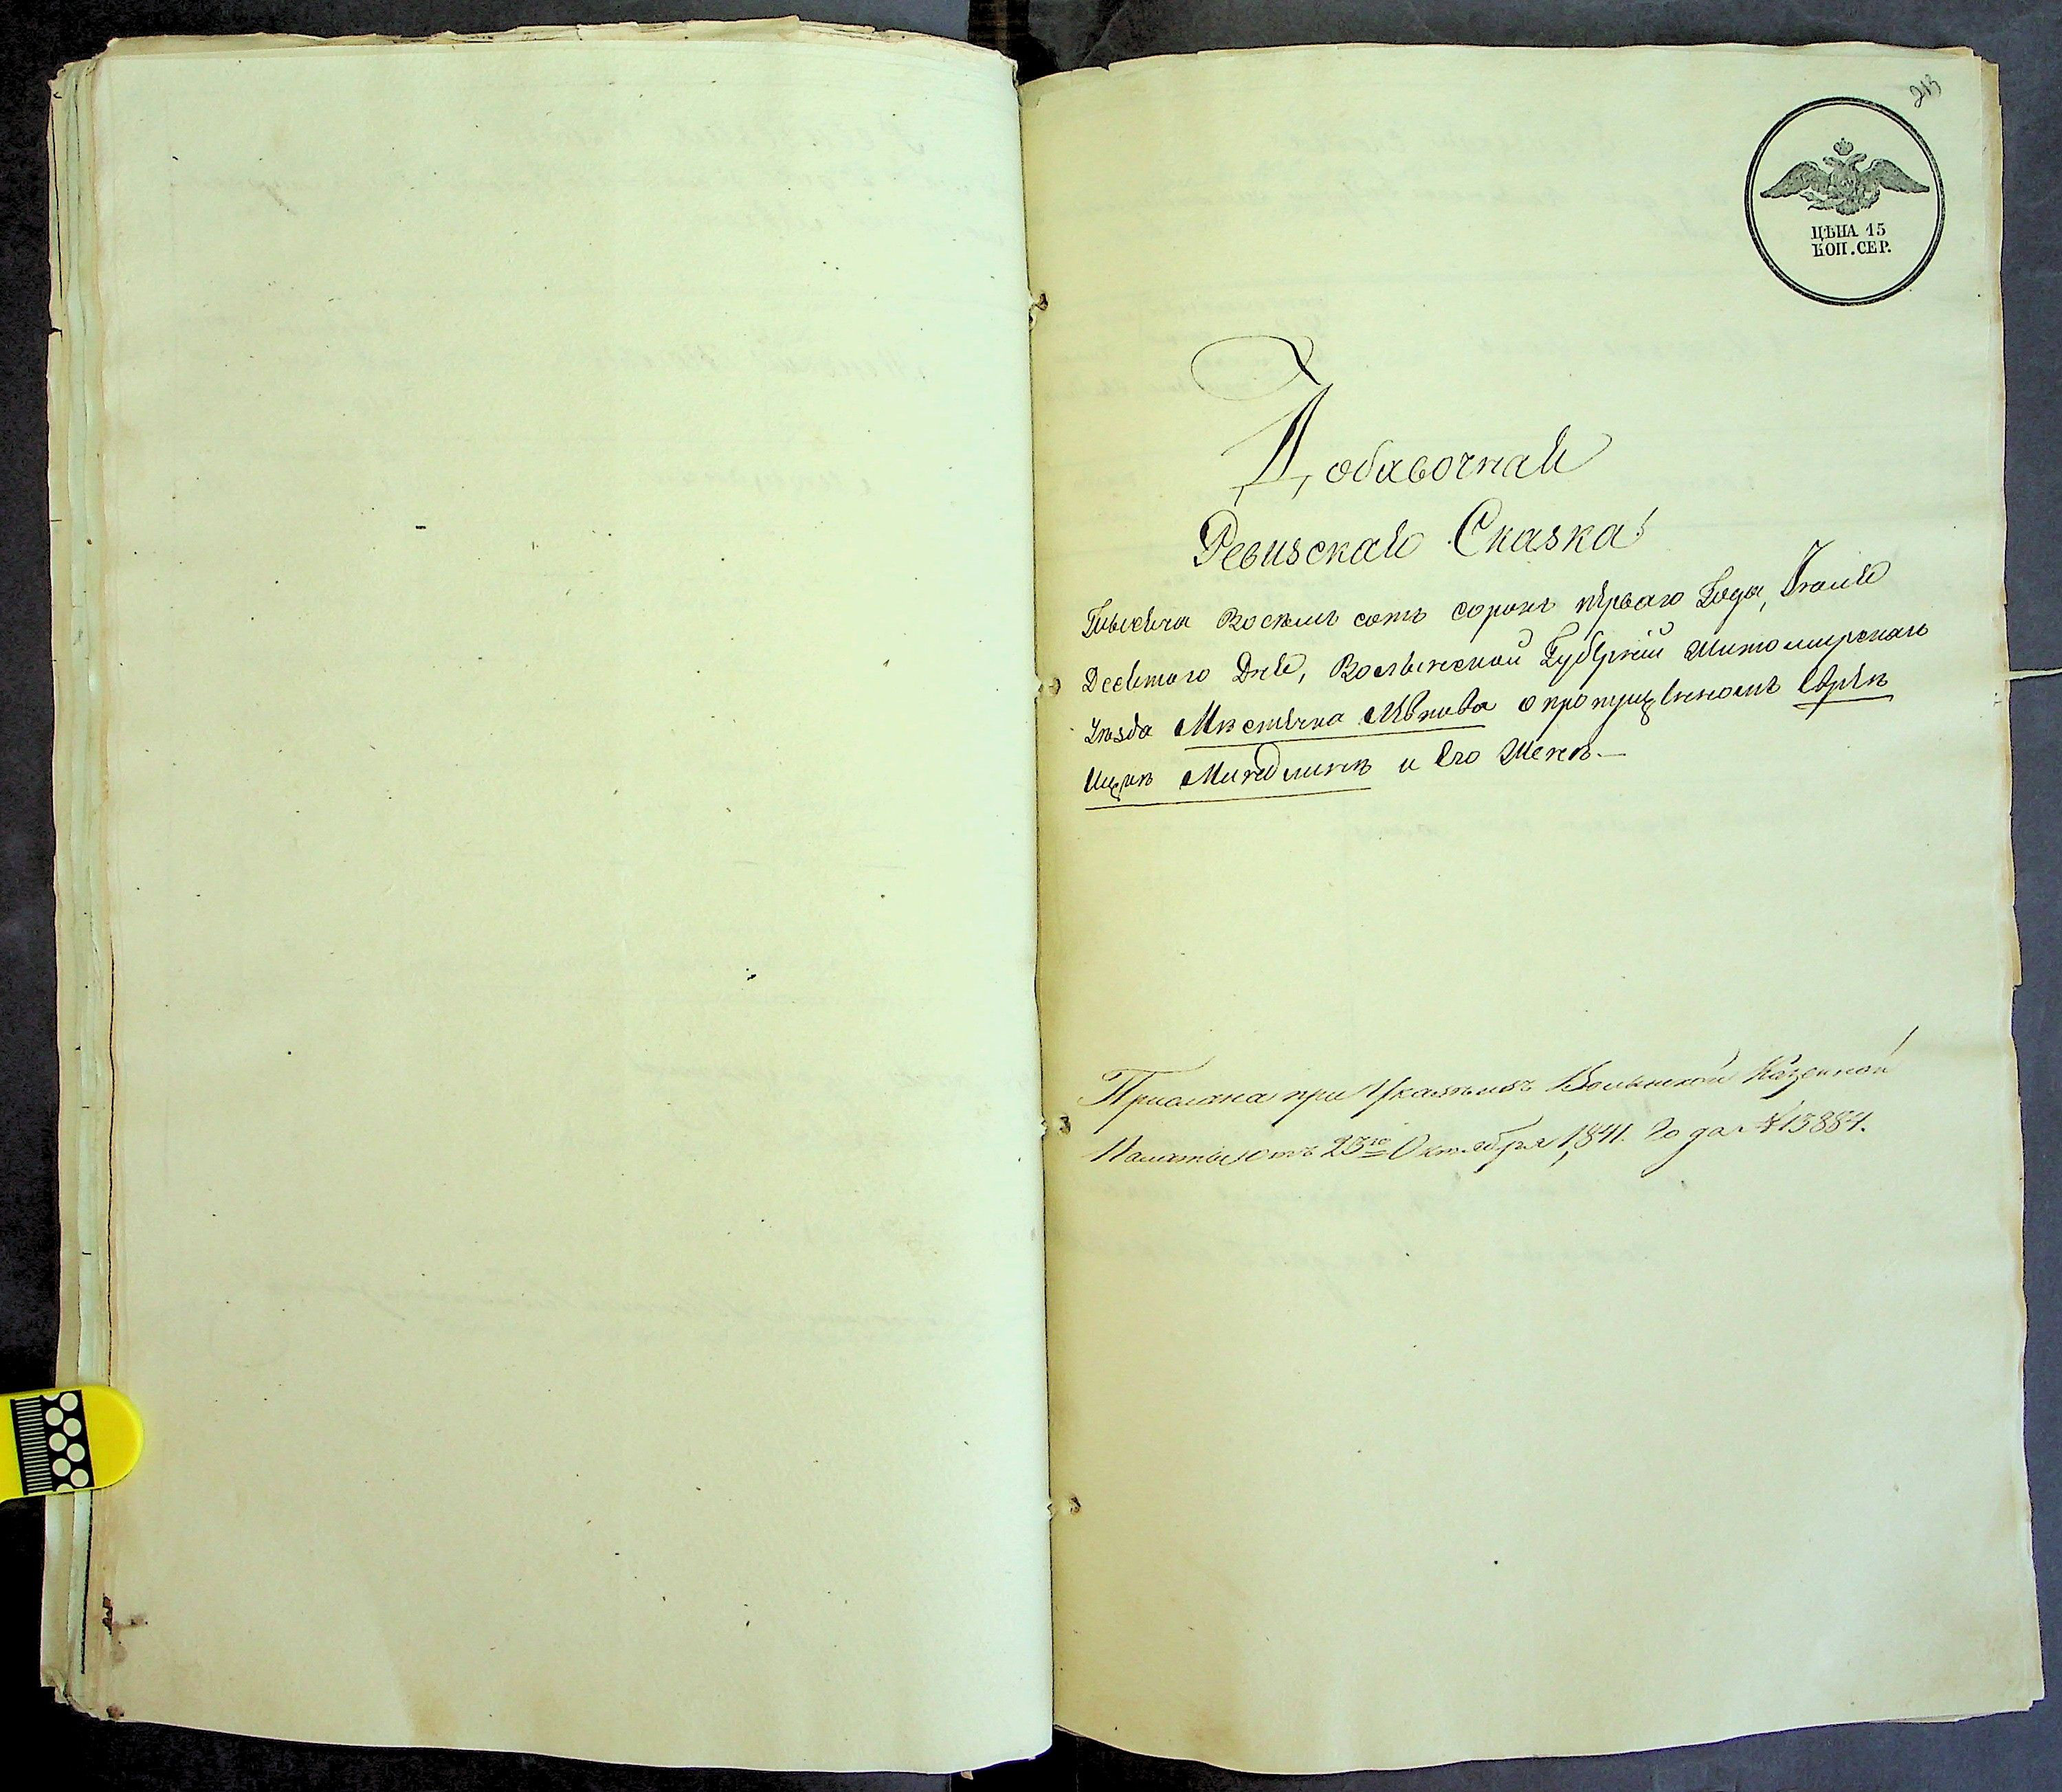 213
ЦѢНА 15
КОП. СЕР.
Добавочная
Ревизская Сказка
Тысяча Восемь сотъ сорокъ перваго Года, Іюля
Десятаго Дня, Волынской Губерніи Житомирскаго
Уезда Местечка о пропущенномъ Еврее
Ицке и Его Жене
Прислана при Указе Волынской Казенной
Палаты отъ 23го Октября 1841. Года № 13884.